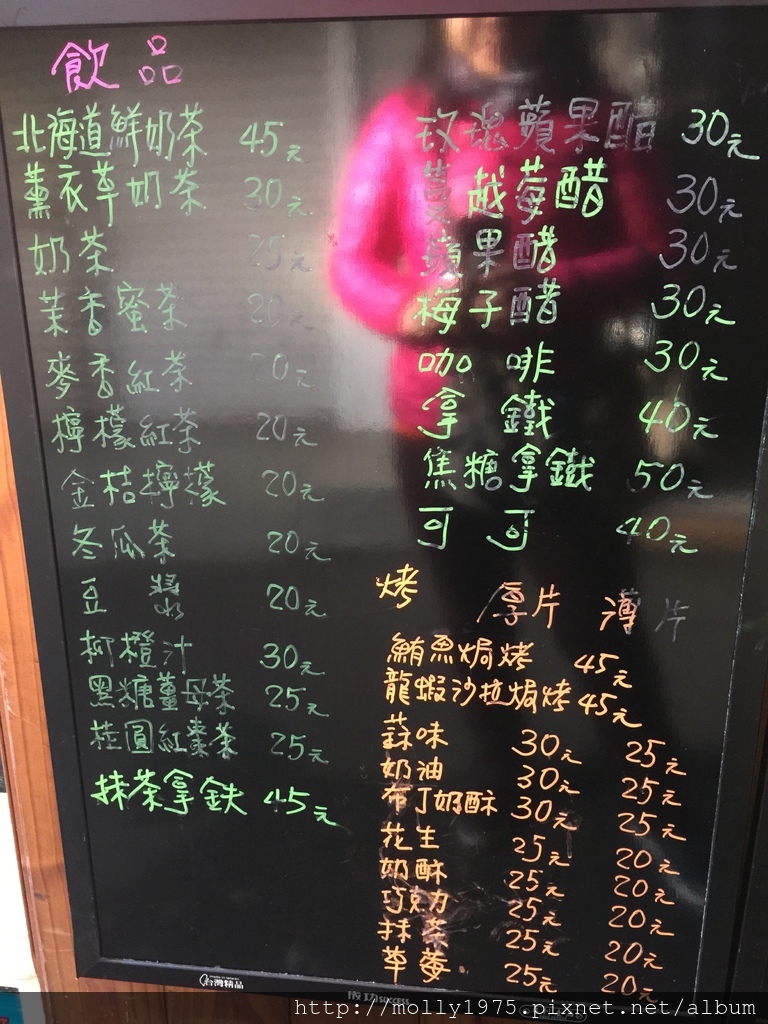 飲品
北海道鮮奶茶 45元
薰衣草奶茶 30元
奶茶 25元
茉香蜜茶 20元
麥香紅茶 20元
檸檬紅茶 20元
金桔檸檬 20元
冬瓜茶 20元
豆漿 20元
柳橙汁 30元
黑糖薑母茶 25元
桂圓紅棗茶 25元
抹茶拿鉄 45元
玫瑰蘋果醋 30元
蔓越莓醋 30元
蘋果醋 30元
梅子醋 30元
咖啡 30元
拿鐵 40元
焦糖拿鐵 50元
可可 40元
烤 厚片 薄片
鮪魚焗烤 45元
龍蝦沙拉焗烤 45元
蒜味 30元 25元
奶油 30元 25元
布丁奶酥 30元 25元
花生 25元 20元
奶酥 25元 20元
巧克力 25元 20元
抹茶 25元 20元
草莓 25元 20元
台灣精品
成功success
http://molly1975.pixnet.net/album